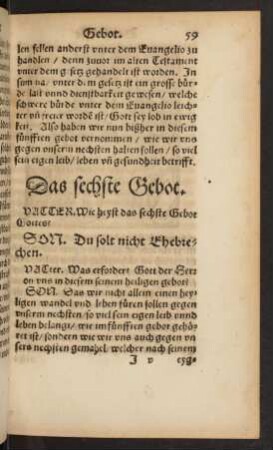 Gebot. 59
len sollen anderst vnter dem Euangelio zu
handlen / denn zuuor im alten Testament
vnter dem gsetz gehandelt ist worden. In
sum̄a / vnter dem gesetz ist ein grosse bür-
de / last vnnd dienstbarkeit gewesen / welche
schwere bürde vnter dem Euangelio leich-
ter vn̄ freier wordē ist / Gott sey lob in ewig
keit. Also haben wir nun bißher in diesem
fünfften gebot vernommen / wie wir vns
gegen vnserm nechsten halten sollen / so viel
sein eigen leib / leben vn̄ gesundheit betrifft.
Das sechste Gebot.
VATTER. Wie heyst das sechste Gebot
Gottes?
SON. Du solt nicht Ehebre-
chen.
VATter. Was erfordert Gott der Herr
von vns in diesem seinem heiligen gebot?
SON. Das wir nicht allein einen hey-
ligen wandel vnd leben füren sollen gegen
vnserm nechsten / so viel sein eigen leib vnnd
leben belangt / wie im fünfften gebot gehö-
ret ist / sondern wie wir vns auch gegen vn
sers nechsten gemahel / welcher nach seinem
J v eyg-